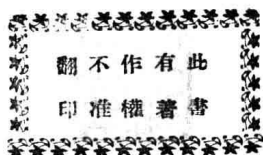 此書
有著
作權
不准
翻印